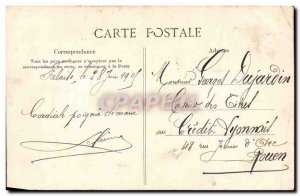 CARTE POSTALE
Correspondance
Tous les pays étrangers n'acceptent pas la
correspondance au recto, se renseigner à la Poste
Adresse
le 28 Juin
Cordiale poignée de main
Monsieur Georges Dujardin
Caissier des Titres
au Crédit Lyonnais
48 rue Jeanne d'Arc
Rouen